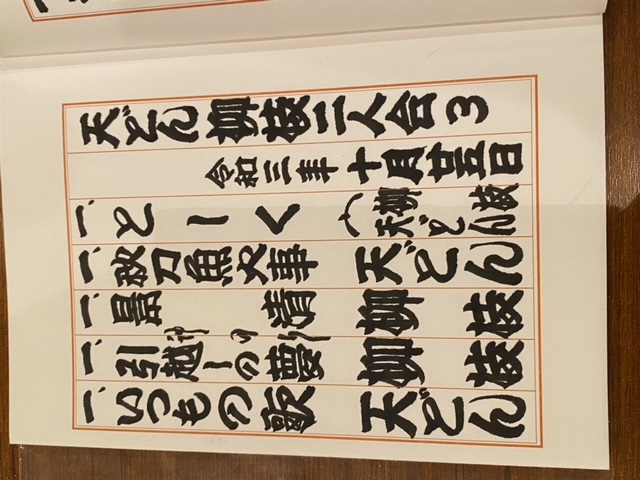 天どん柳枝二人会3
令和三年十月廿五日
一、とーく 柳枝 天どん
一、秋刀魚火事 天どん
一、景清 柳枝
一、引越しの夢 柳枝
一、いつもの歌 天どん